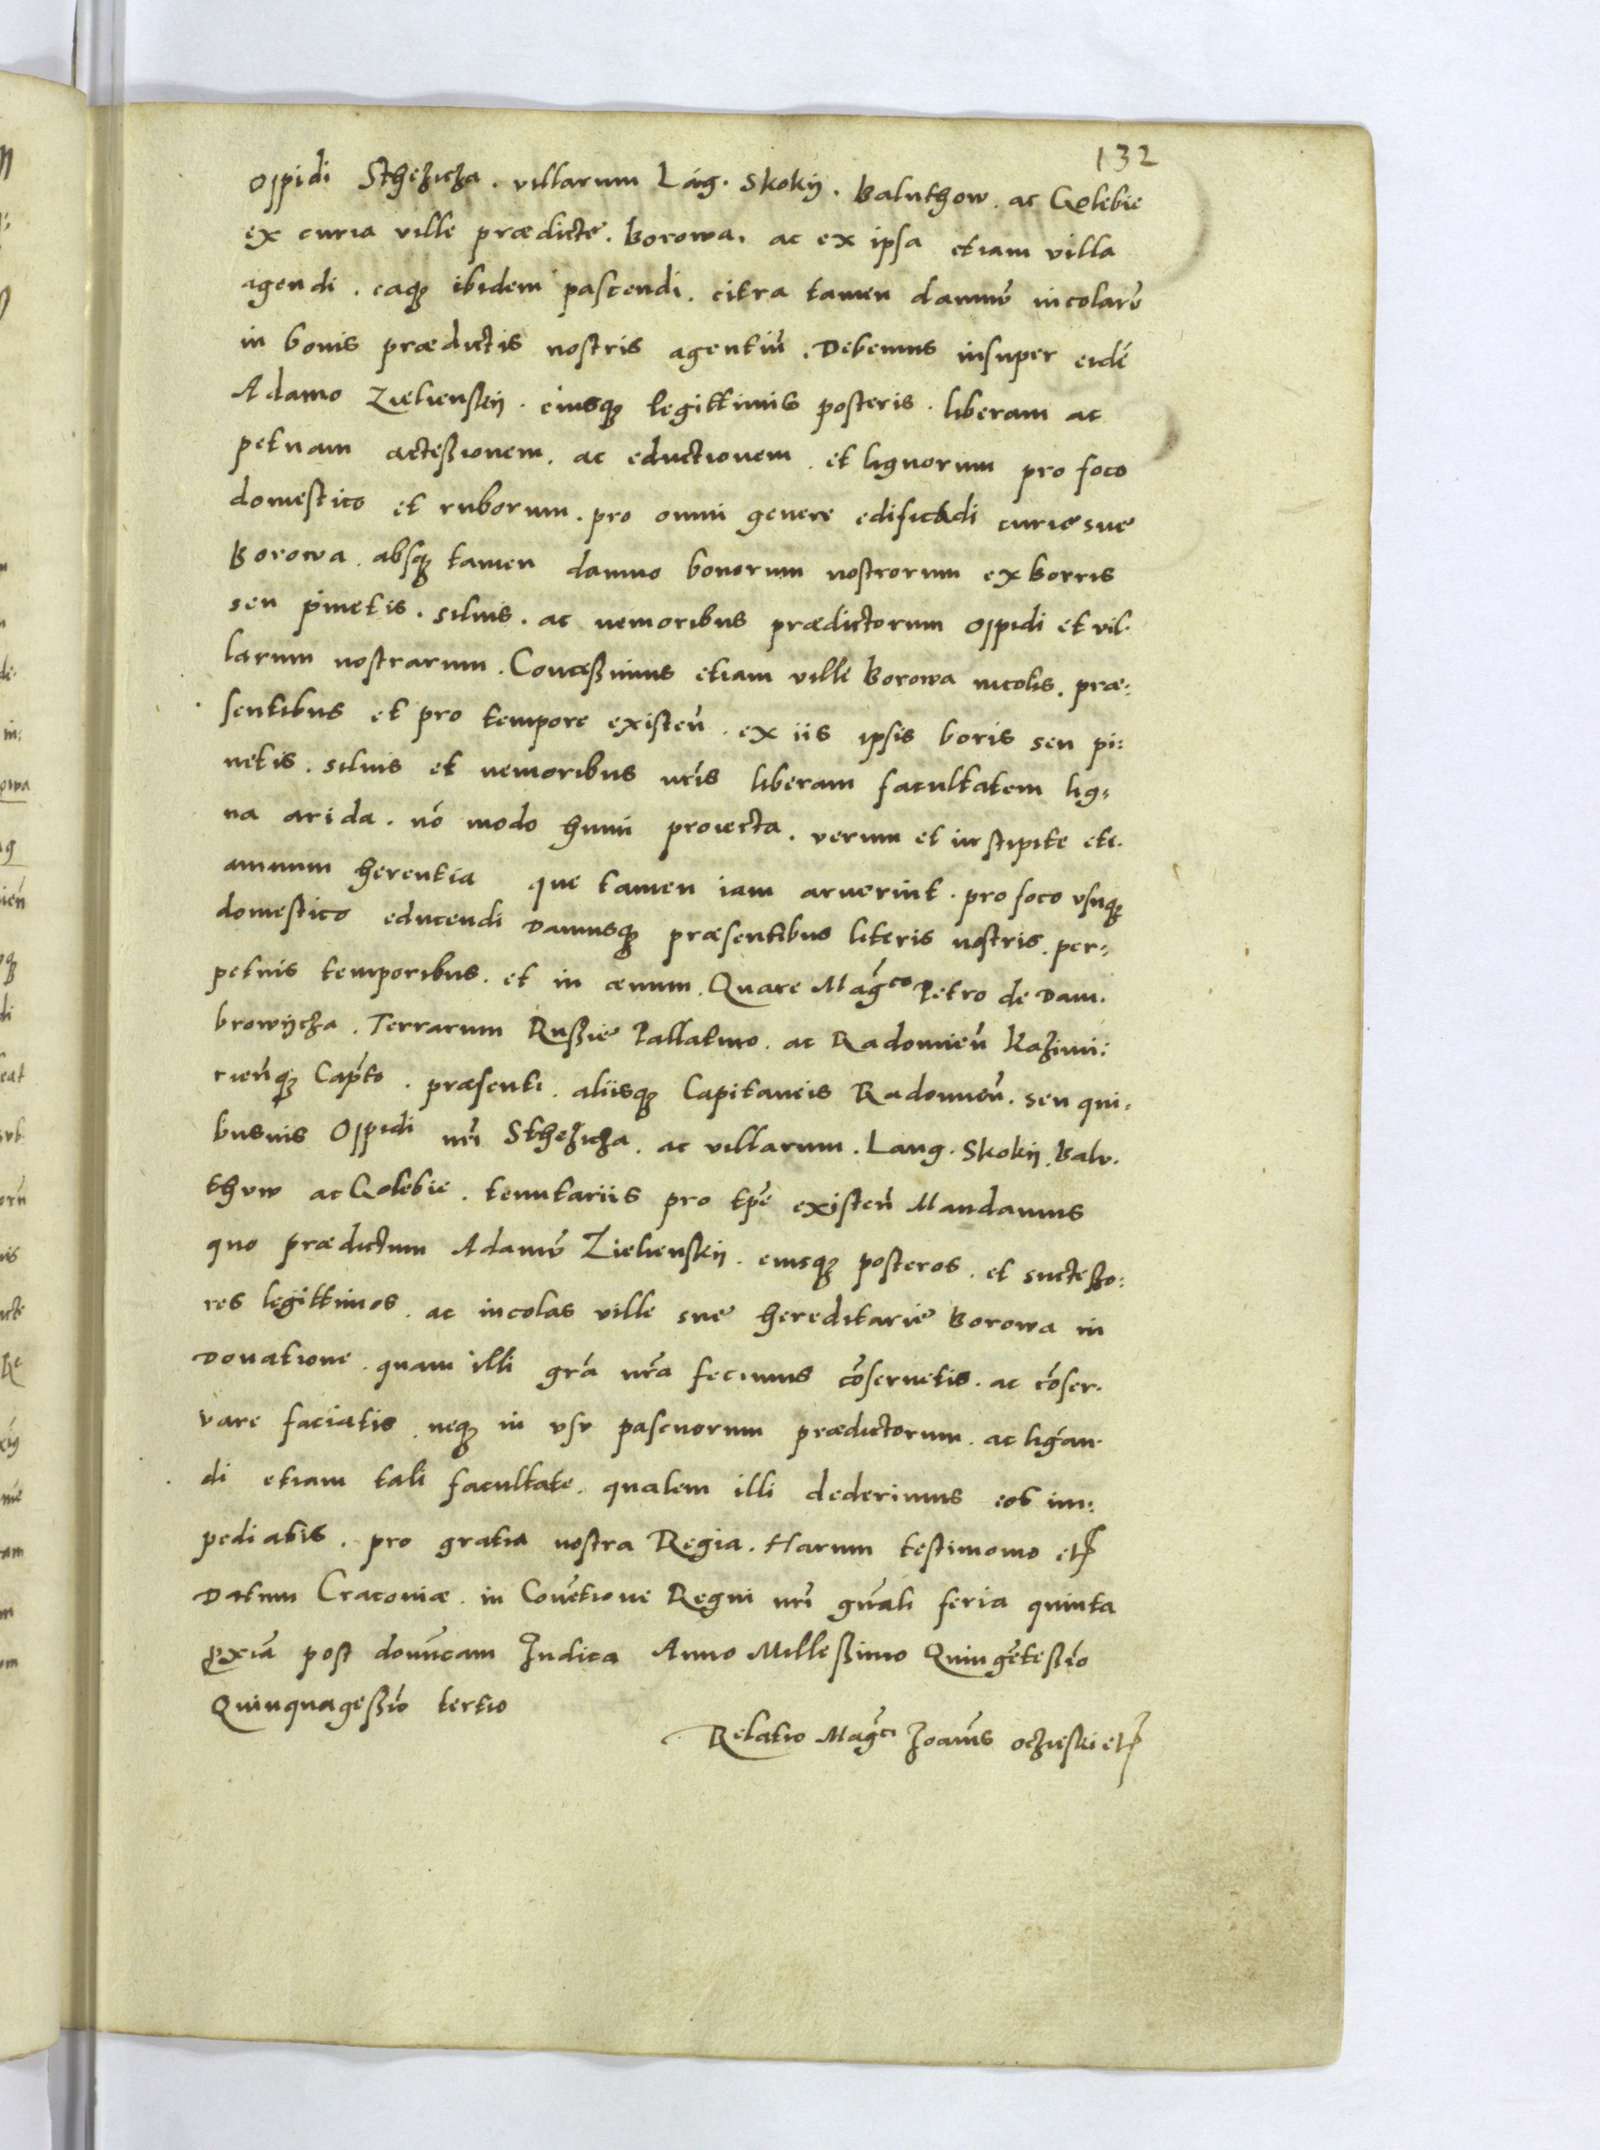 132
oppidi Sthezicza. villarum Lág. Skokij. Baluthow. ac Golebie
ex curia ville prædicte. Borowa. ac ex ipsa etiam villa
agendi. eaqꝫ ibidem pascendi. citra tamen damnū incolarū
in bonis prædictis nostris agentiū. Debemus insuper eidē
Adamo Zielienskij. eiusqꝫ legittimis posteris. liberam ac
petuam accessionem. ac eductionem. et lignorum pro foco
domestico et ruborum. pro omni genere edificādi curie sue
Borowa. absqꝫ tamen damno bonorum nostrorum ex borris
seu pinetis. siluis. ac nemoribus prædictorum oppidi et vil.
larum nostrarum. Concessimus etiam ville Borowa incolis. præ:
sentibus et pro tempore existeñ. ex iis ipsis boris seu pi:
netis. siluis et nemoribus nr̃is liberam facultatem lig:
na arida. nō modo humi proiecta. verum et in stipite eti.
amnum herentia que tamen iam aruerint. pro foco vsuqꝫ
domestico educendi Damusqꝫ præsentibus literis nostris. per:
petuis temporibus. et in æuum. Quare Mág̃co Petro de Dam.
browijcza. Terrarum Russie Pallatino. ac Radomieñ Kazimi:
rieñqꝫ Capto. præsenti. aliisqꝫ Capitaneis Radomieñ. seu qui:
busuis Oppidi nr̃i Sthezicza. ac villarum. Laug. Skokij. Balv.
thvw ac Golebie. tenutariis pro tpe existeñ Mandamus
quo prædictum Adamū Zielienskij. eiusqꝫ posteros. et successo:
res legittimos. ac incolas ville sue hereditarie Borowa in
Donatione. quam illi gr̃a nr̃a fecimus cōseruetis. ac cōser.
vare faciatis. neqꝫ in vsv pascuorum prædictorum. ac lignan.
di etiam tali facultate. qualem illi dederimus eos im:
pediatis. pro gratia nostra Regia. Harum testimonio etc̃
Datum Cracouiæ. in Cōuētione Regni nr̃i gñali feria quinta
ꝓxiā post domīcam Iudica Anno Millessimo Quingētessīo
Quinquagessīo tertio
Relatio Mag̃ci Joañis oczieski etc̃